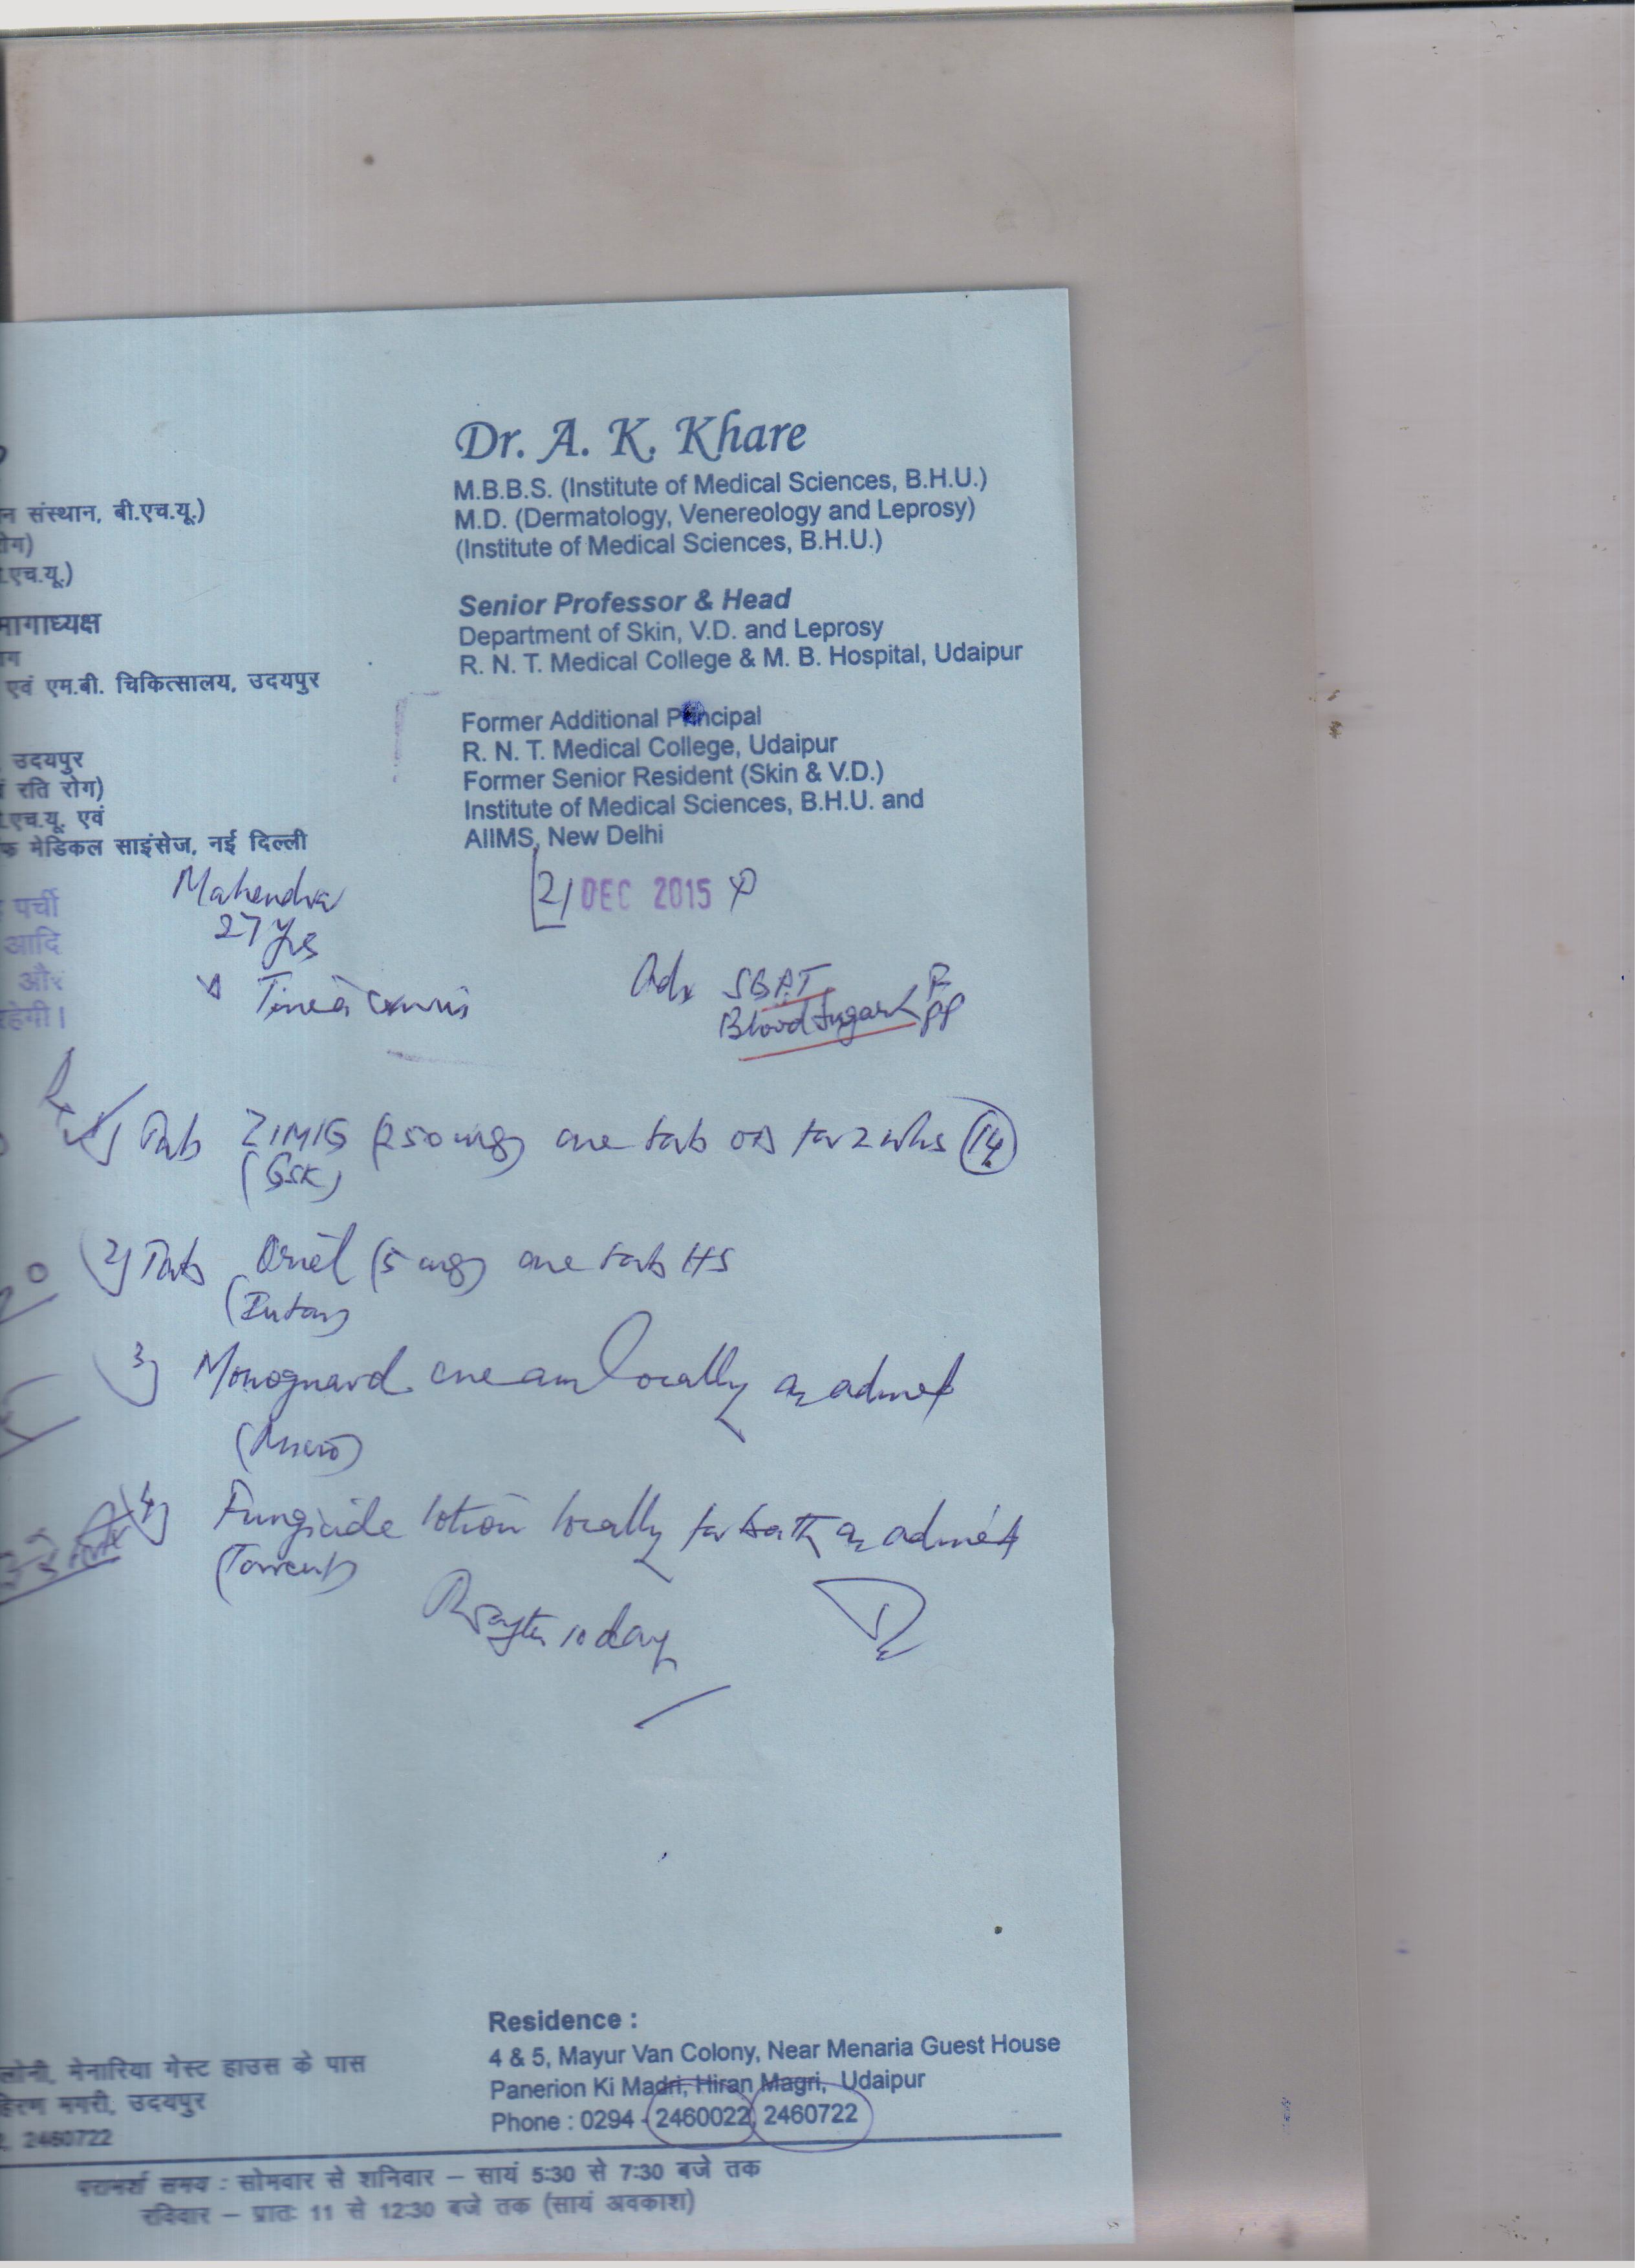 न संस्थान, बी.एच.यू.)
रोग)
.एच.यू.)
भागाध्यक्ष
एवं एम.बी. चिकित्सालय, उदयपुर
उदयपुर
रति रोग)
.एच.यू. एवं
मेडिकल साइंसेज, नई दिल्ली
पर्ची
आदि
और
रहेगी।
Dr. A. K. Khare
M.B.B.S. (Institute of Medical Sciences, B.H.U.)
M.D. (Dermatology, Venereology and Leprosy)
(Institute of Medical Sciences, B.H.U.)
Senior Professor & Head
Department of Skin, V.D. and Leprosy
R. N. T. Medical College & M. B. Hospital, Udaipur
Former Additional Principal
R. N. T. Medical College, Udaipur
Former Senior Resident (Skin & V.D.)
Institute of Medical Sciences, B.H.U. and
AIIMS, New Delhi
Mahendra
27 yrs
21 DEC 2015
Tinea cruris
Adv
Blood Sugar F PP
Rx
1) Tab ZIMIG (250 mg) one tab OD for 2 wks (14)
(GSK)
2) Tab (5 mg) one tab HS
(Intas)
3) Monoguard cream locally as advised
(Micro)
4) Fungicide lotion locally for bath as advised
(Torrent)
after 10 days
Residence :
4 & 5, Mayur Van Colony, Near Menaria Guest House
Panerion Ki Madri, Hiran Magri, Udaipur
Phone : 0294 - 2460022, 2460722
लोनी, मेनारिया गेस्ट हाउस के पास
हिरण मगरी, उदयपुर
2460722
परामर्श समय : सोमवार से शनिवार – सायं 5:30 से 7:30 बजे तक
रविवार – प्रातः 11 से 12:30 बजे तक (सायं अवकाश)